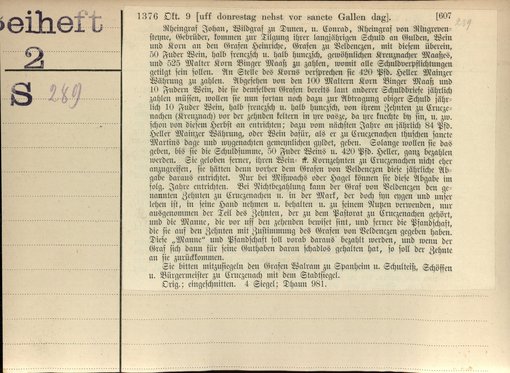 Beiheft
2
S 289
1376 Okt. 9 [uff donrestag nehst vor sancte Gallen dag]. [607
289
Rheingraf Johan, Wildgraf zu Dunen, u. Conrad, Rheingraf von Ringreven-
steyne, Gebrüder, kommen zur Tilgung ihrer langjährigen Schuld an Gulden, Wein
und Korn an den Grafen Heinriche, Grafen zu Veldenczen, mit diesem überein,
50 Fuder Wein, halb frenczsch u. halb hunczsch, gewöhnlichen Kreuznacher Maaßes,
und 525 Malter Korn Binger Maaß zu zahlen, womit alle Schuldverpflichtungen
getilgt sein sollen. An Stelle des Korns versprechen sie 420 Pfd. Heller Mainzer
Währung zu zahlen. Abgesehen von den 100 Maltern Korn Binger Maaß und
10 Fudern Wein, die sie demselben Grafen bereits laut anderer Schuldbriefe jährlich
zahlen müssen, wollen sie nun fortan noch dazu zur Abtragung obiger Schuld jähr-
lich 10 Fuder Wein, halb frenczsch u. halb hunczsch, von ihrem Zehnten zu Crucze-
nachen (Kreuznach) vor der zehnden keltern in yre vasze, da yre knechte by sin, u. zw.
schon von diesem Herbst an entrichten; dazu vom nächsten Jahre an jährlich 84 Pfd.
Heller Mainzer Währung, oder Wein dafür, als er zu Cruczenachen thuschen sancte
Martins dage und wyzenachen gemeynlichen gyldet, geben. Solange wollen sie das
geben, bis sie die Schuldsumme, 50 Fuder Weins u. 420 Pfd. Heller, ganz bezahlen
werden. Sie geloben ferner, ihren Wein- u. Kornzehnten zu Cruczenachen nicht eher
anzugreifen, sie hätten denn vorher dem Grafen von Veldenczen diese jährliche Ab-
gabe daraus entrichtet. Nur bei Mißwachs oder Hagel können sie diese Abgabe im
folg. Jahre entrichten. Bei Nichtbezahlung kann der Graf von Veldenczen den ge-
nannten Zehnten zu Cruczenachen u. in der Mark, der doch syn eygen und unser
lehen ist, in seine Hand nehmen u. behalten u. zu seinem Nutzen verwenden, nur
ausgenommen der Teil des Zehnten, der zu dem Pastorat zu Cruczenachen gehört,
und die Manne, die vor uff den zehenden bewiset sint, und ferner die Pfandschaft,
die sie auf den Zehnten mit Zustimmung des Grafen von Veldenczen gegeben haben.
Diese „Manne“ und Pfandschaft soll vorab daraus bezahlt werden, und wenn der
Graf sich dann für seine Guthaben daran schadlos gehalten hat, so soll der Zehnte
an sie zurückkommen.
Sie bitten mitzusiegeln den Grafen Walram zu Spanheim u. Schulteiß, Schöffen
u. Bürgermeister zu Cruczenach mit dem Stadtsiegel.
Orig.; eingeschnitten. 4 Siegel; Dhaun 981.